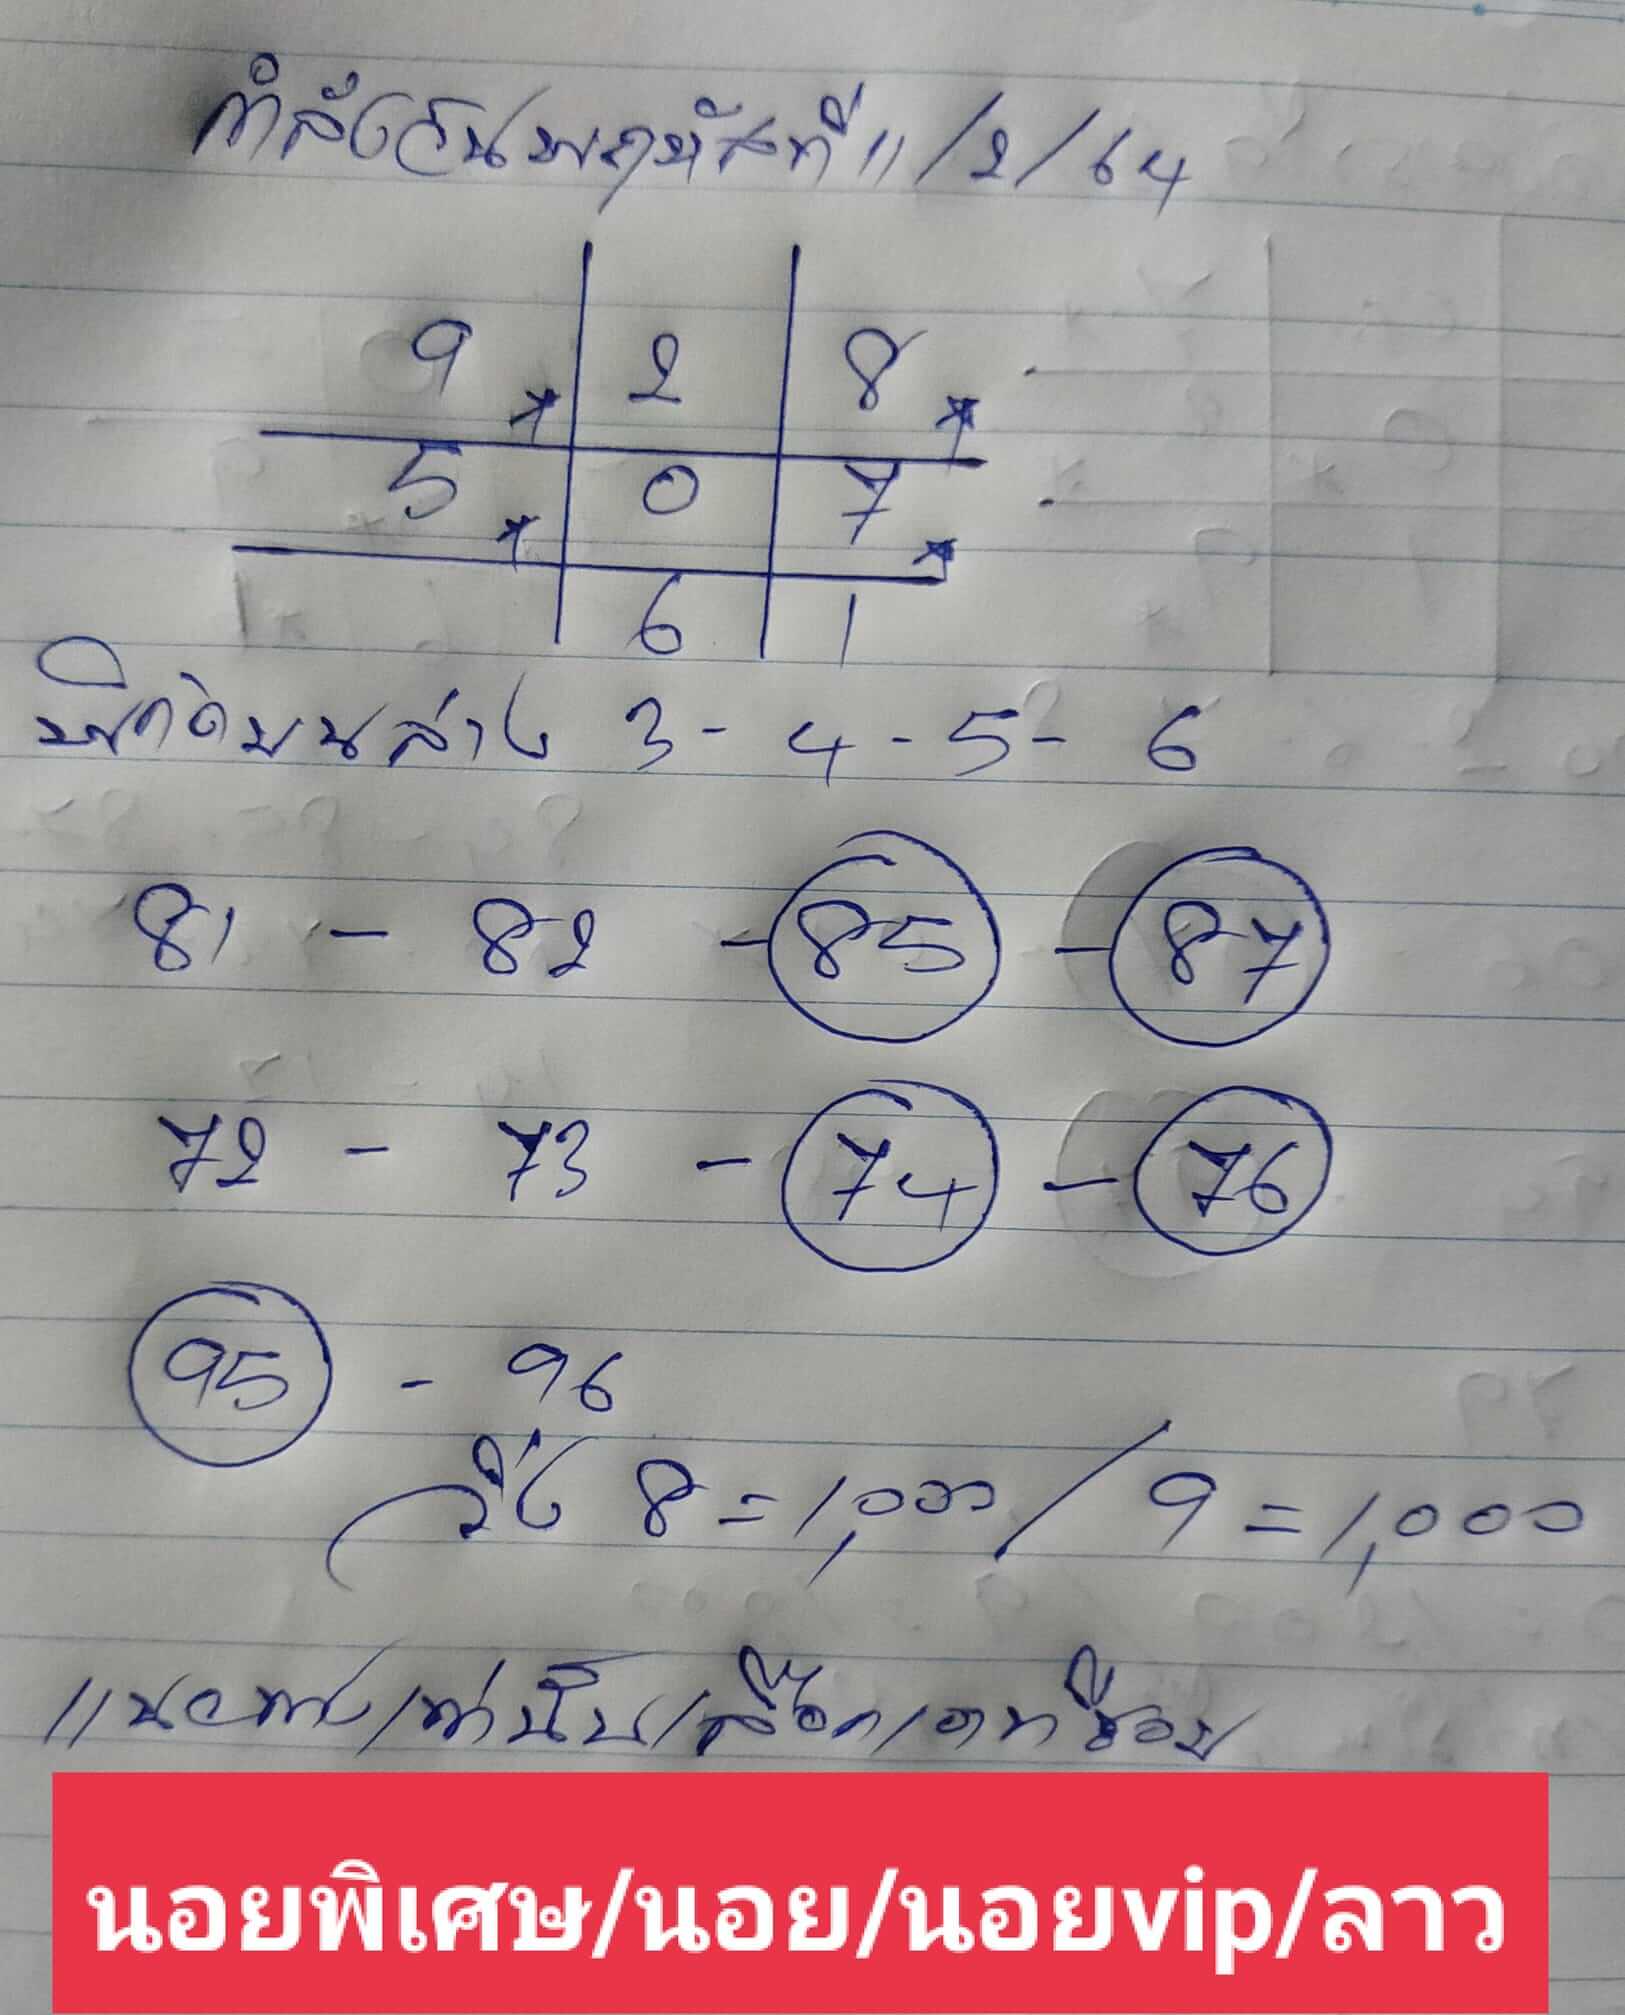 กำลังวันพฤหัสที่ 11/2/64
9 * 2 8 *
5 * 0 7 *
6 1
พิกัดบนล่าง 3 - 4 - 5 - 6
81 - 82 - 85 - 87
72 - 73 - 74 - 76
95 - 96
วิ่ง 8 = 1,000 / 9 = 1,000
แนวทางเท่านั้นเลือกเอาที่ชอบ
นอยพิเศษ/นอย/นอยvip/ลาว